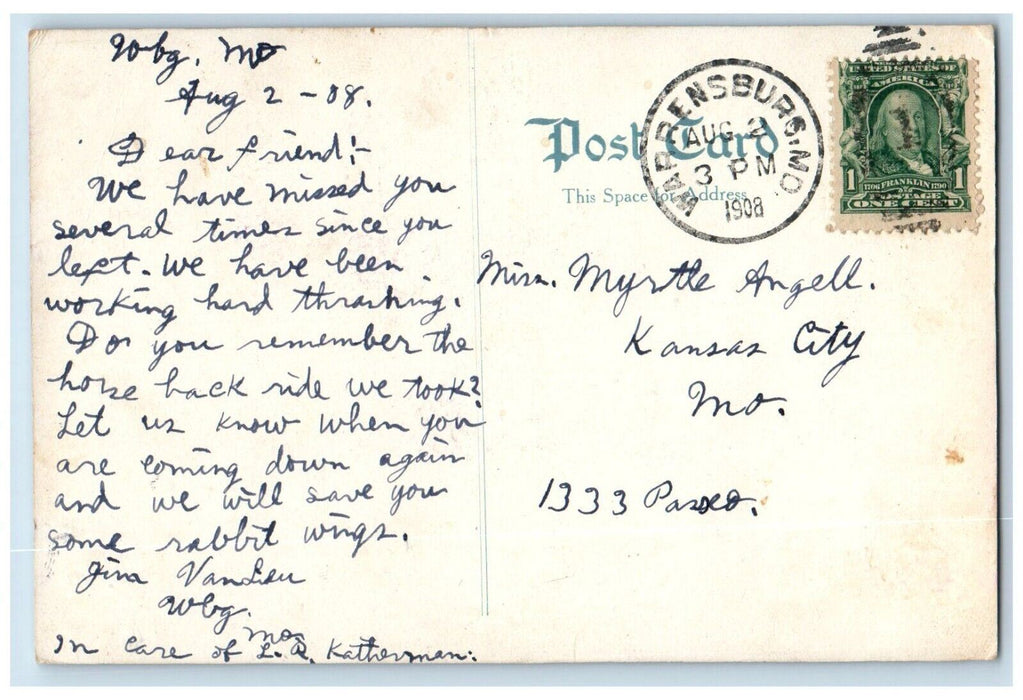 Wbg, Mo
Aug 2 - 08.
Dear friend:-
We have missed you
several times since you
left. We have been
working hard thrashing.
Do you remember the
horse back ride we took?
Let us know when you
are coming down again
and we will save you
some rabbit wings.
VanLieu
Wbg.
Mo.
In care of L. R. Katherman:
Post Card
This Space for Address
WARRENSBURG, MO
AUG 2
3 PM
1908
UNITED STATES OF
AMERICA
1 1706 FRANKLIN 1790 1
ONE CENT
Miss. Myrtle Angell.
Kansas City
Mo.
1333 Paseo.